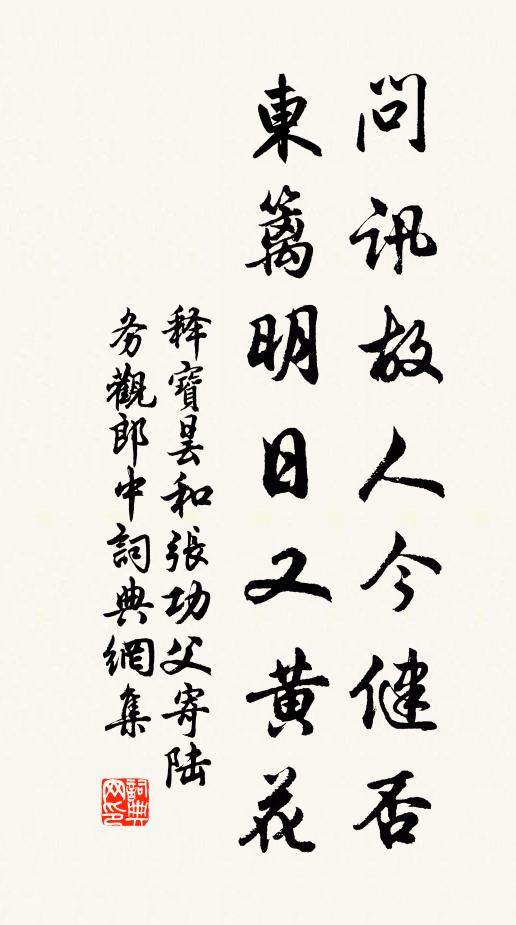 問訊故人今健否
東籬明日又黄花
释寶曇和張功父寄陆
务觀郎中詞典網集
詞典网印